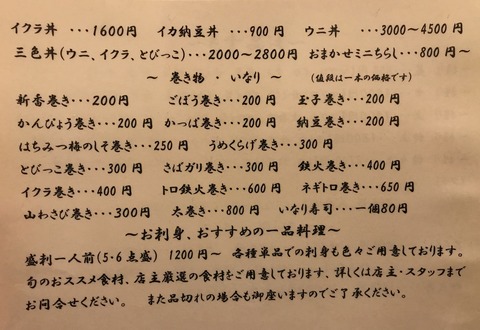 イクラ丼 ・・・1600円 イカ納豆丼 ・・・900円 ウニ丼 ・・・3000〜4500円
三色丼(ウニ、イクラ、とびっこ)・・・2000〜2800円 おまかせミニちらし・・・800円〜
〜 巻き物 ・ いなり 〜 (値段は一本の価格です)
新香巻き・・・200円 ごぼう巻き・・・200円 玉子巻き・・・200円
かんぴょう巻き・・・200円 かっぱ巻き・・・200円 納豆巻き・・・200円
はちみつ梅のしそ巻き・・・250円 うめくらげ巻き・・・300円
とびっこ巻き・・・300円 さばガリ巻き・・・300円 鉄火巻き・・・400円
イクラ巻き・・・400円 トロ鉄火巻き・・・600円 ネギトロ巻き・・・650円
山わさび巻き・・・300円 太巻き・・・800円 いなり寿司・・・一個80円
〜お刺身、おすすめの一品料理〜
盛刺一人前(5・6点盛) 1200円〜 各種単品での刺身も色々ご用意しております。
旬のおススメ食材、店主厳選の食材をご用意しております、詳しくは店主・スタッフまで
お問合せください。 また品切れの場合も御座いますのでご了承ください。